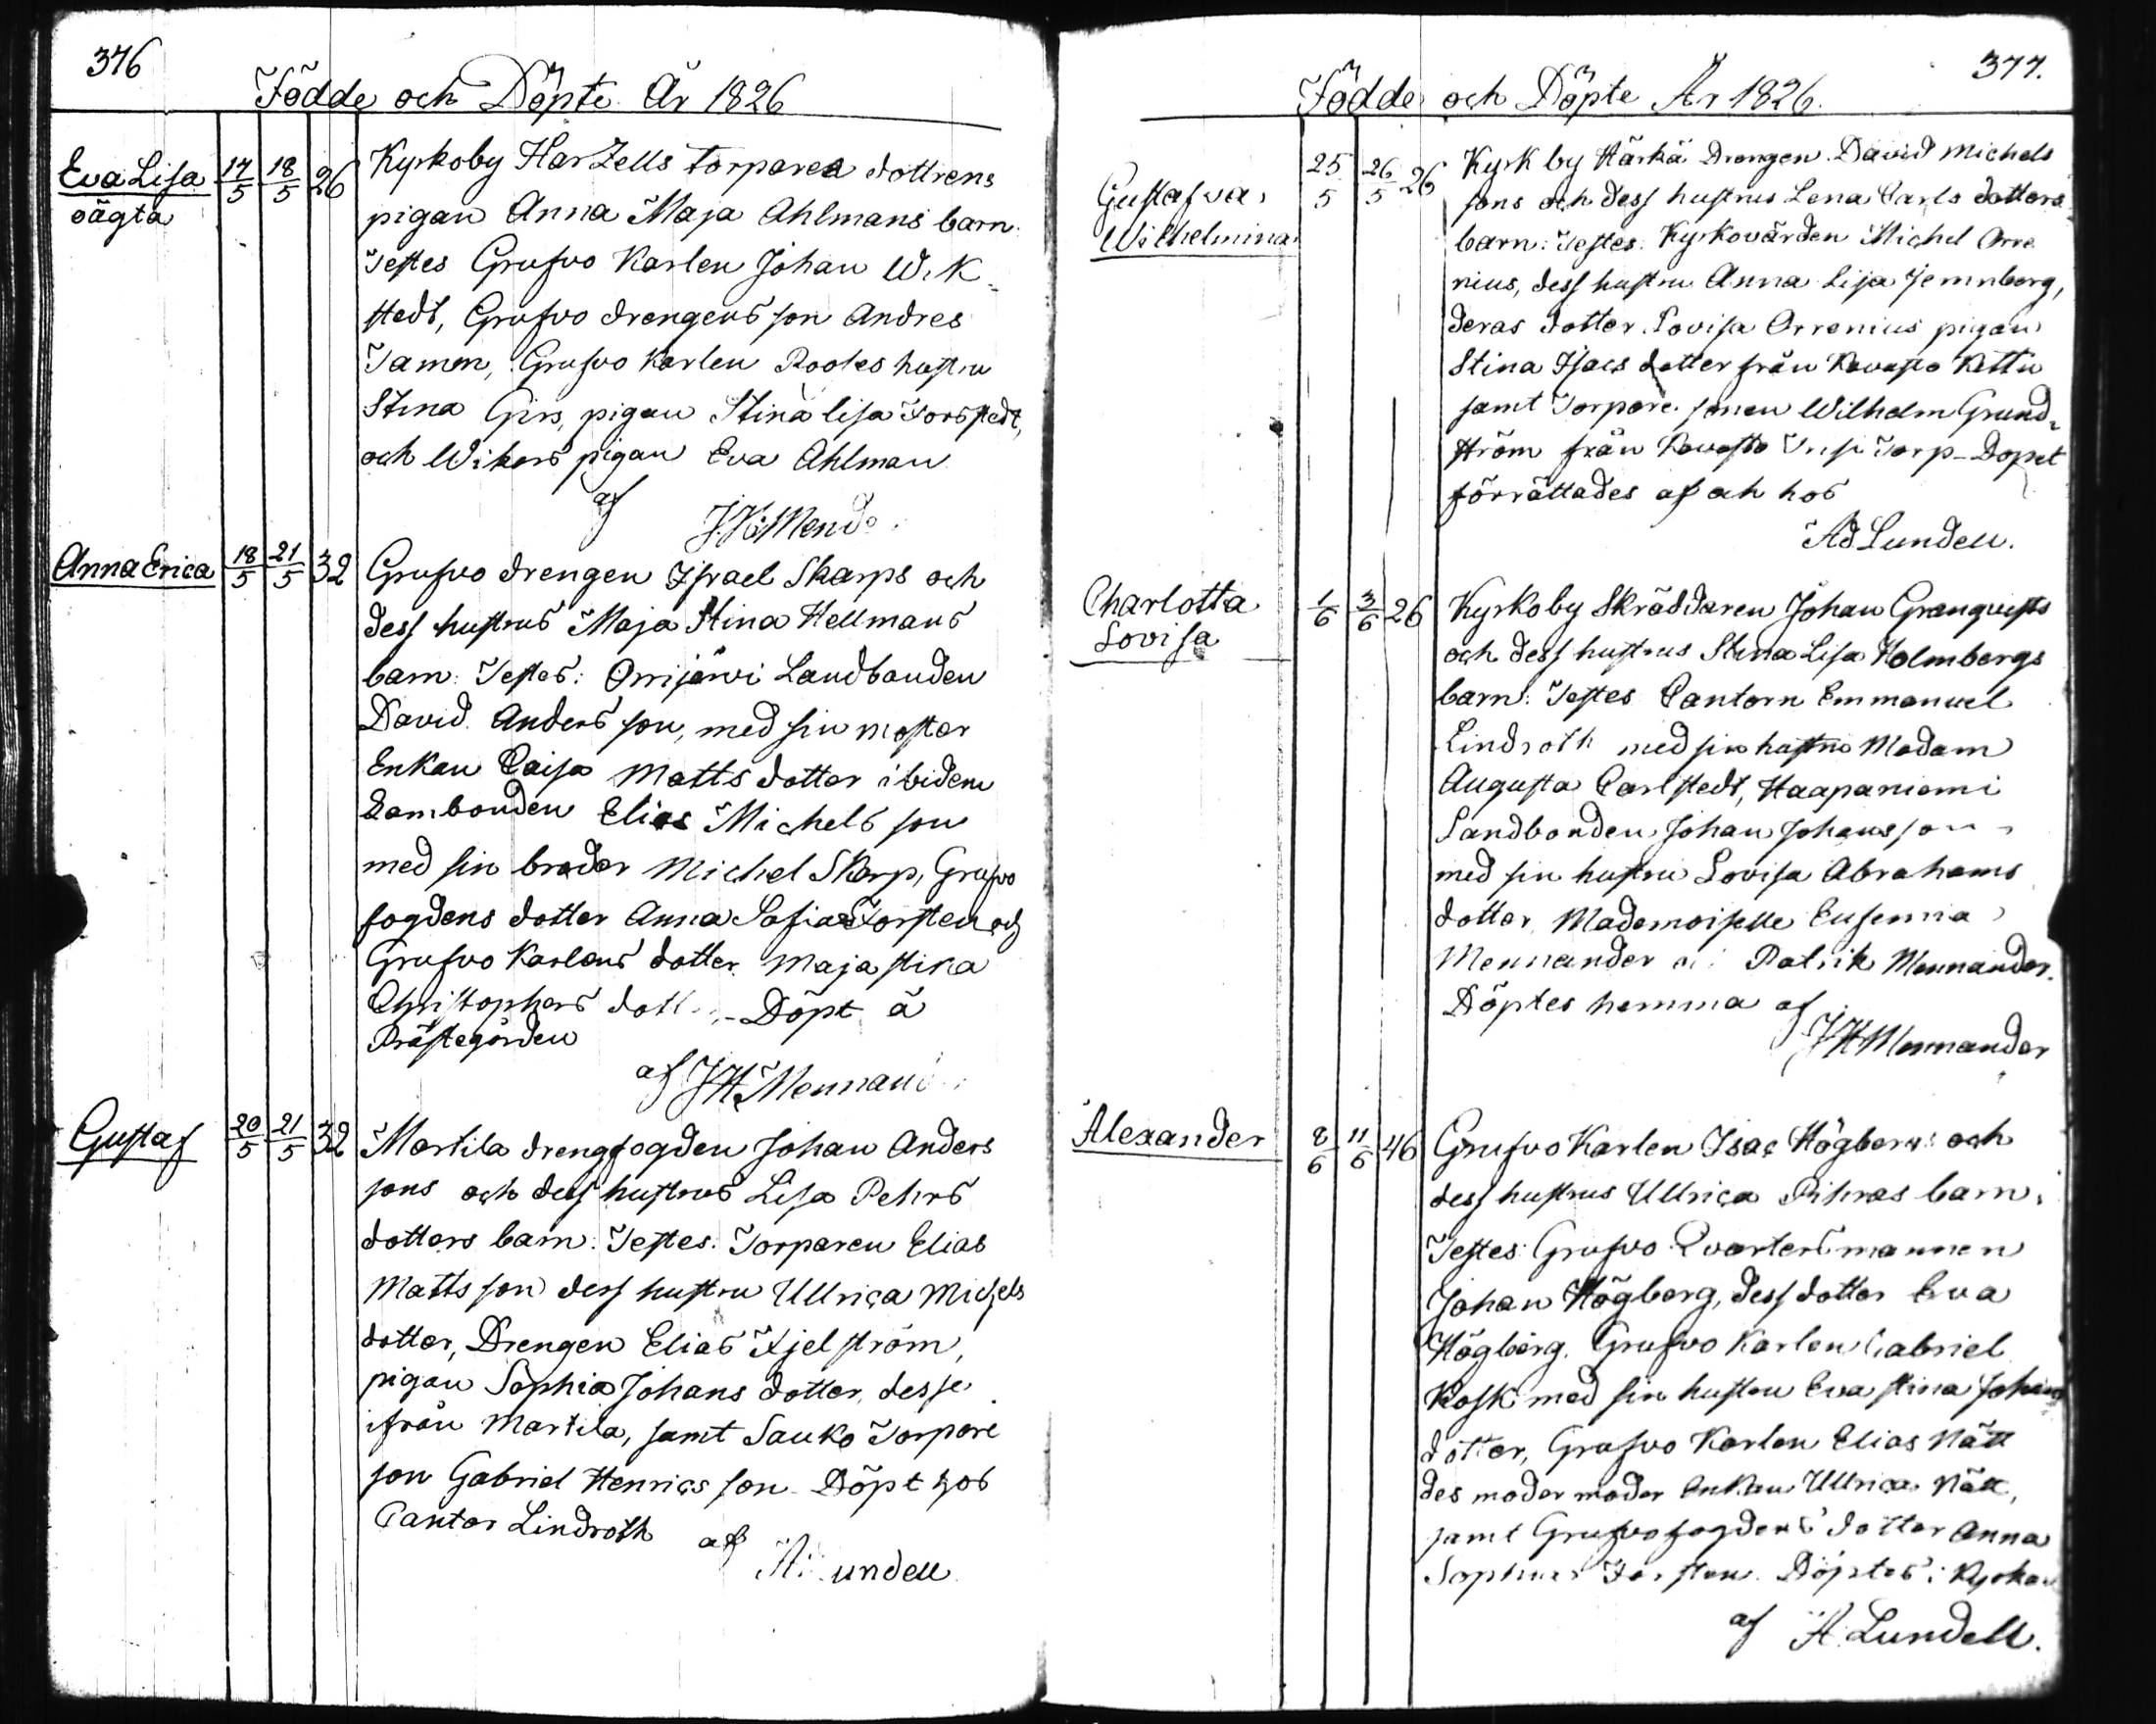 376
Födde och Döpte År 1826
Eva Lisa
oägta
17/5 18/5 26
Kyrkoby Harzells torpares dottrens
pigan Anna Maja Ahlmans barn.
Testes Grufvo Karlen Johan Wik=
stedt, Grufvo drengens son Andres
Tamen, Grufvo Karlen Rooles hustru
Stina Girs, pigan Stina lisa Forsstedt,
och Wikars pigan Eva Ahlman
af
J.H. Mend
Anna Erica
18/5 21/5 32
Grufvo drengen Israel Skarps och
dess hustrus Maja Stina Hellmans
barn: Testes: Orrijärvi Landbonden
David Anders son, med sin moster
Enkan Caisa Matts dotter ibidem
Lambonden Elias Michels son
med sin broder Michel Skarp, Grufvo
fogdens dotter Anna Sofia Forsten och
Grufvo Karlens dotter Maja stina
Christophers dott - Döpt å
Prästegården
af J H Mennan
Gustaf
20/5 21/5 32
Martila drengfogden Johan Anders
sons och dess hustrus Lisa Pehrs
dotters barn. Testes: Torparen Elias
Matts son dess hustru Ullrica Michels
dotter, Drengen Elias Kjelström,
pigan Sophia Johans dotter, desse
ifrån Martila, samt Sauko Torpare
son Gabriel Henrics son - Döpt hos
Cantor Lindroth af
A. undell
377.
Födde och Döpte År 1826.
Gustafva
Wilhelmina
25/5 26/5 26
Kyrk by Härkä Drengen David Michels
sons och dess hustrus Lena Carls dotters
barn: Testes: Kyrkovärden Michel Arre
nius, dess hustru Anna Lisa Jernberg,
deras dotter Lovisa Arrenius pigan
Stina Isacs dotter från Kavasto Kettu
samt Torpare sonen Wilhelm Grund=
ström från Kavasto Torp - Dopet
förrättades af och hos
Ad Lundell.
Charlotta
Lovisa
1/6 3/6 26
Kyrkoby Skräddaren Johan Granqvists
och dess hustrus Stina Lisa Holmbergs
barn: Testes Cantorn Emmanuel
Lindroth med sin hustru Madam
Augusta Carlstedt, Haapaniemi
Landbonden Johan Johansson
med sin hustru Lovisa Abrahams
dotter, Mademoiselle Eufemia
Mennander Patrik Mennander.
Döptes hemma af
J H Mennander
Alexander
8/6 11/6 46
Grufvo Karlen Isac Högbergs och
dess hustrus Ullrica Pihras barn.
Testes: Grufvo Qvartersmannen
Johan Högberg, dess dotter Eva
Högberg, Grufvo Karlen Gabriel
Kosk med sin hustru Eva stina Johans
dotter, Grufvo Karlen Elias Nätt
des moder moder Enkan Ullrica Nätt,
samt Grufvofogdens dotter Anna
Sophia Forsten. Döptes i Kyrkan
af A. Lundell.